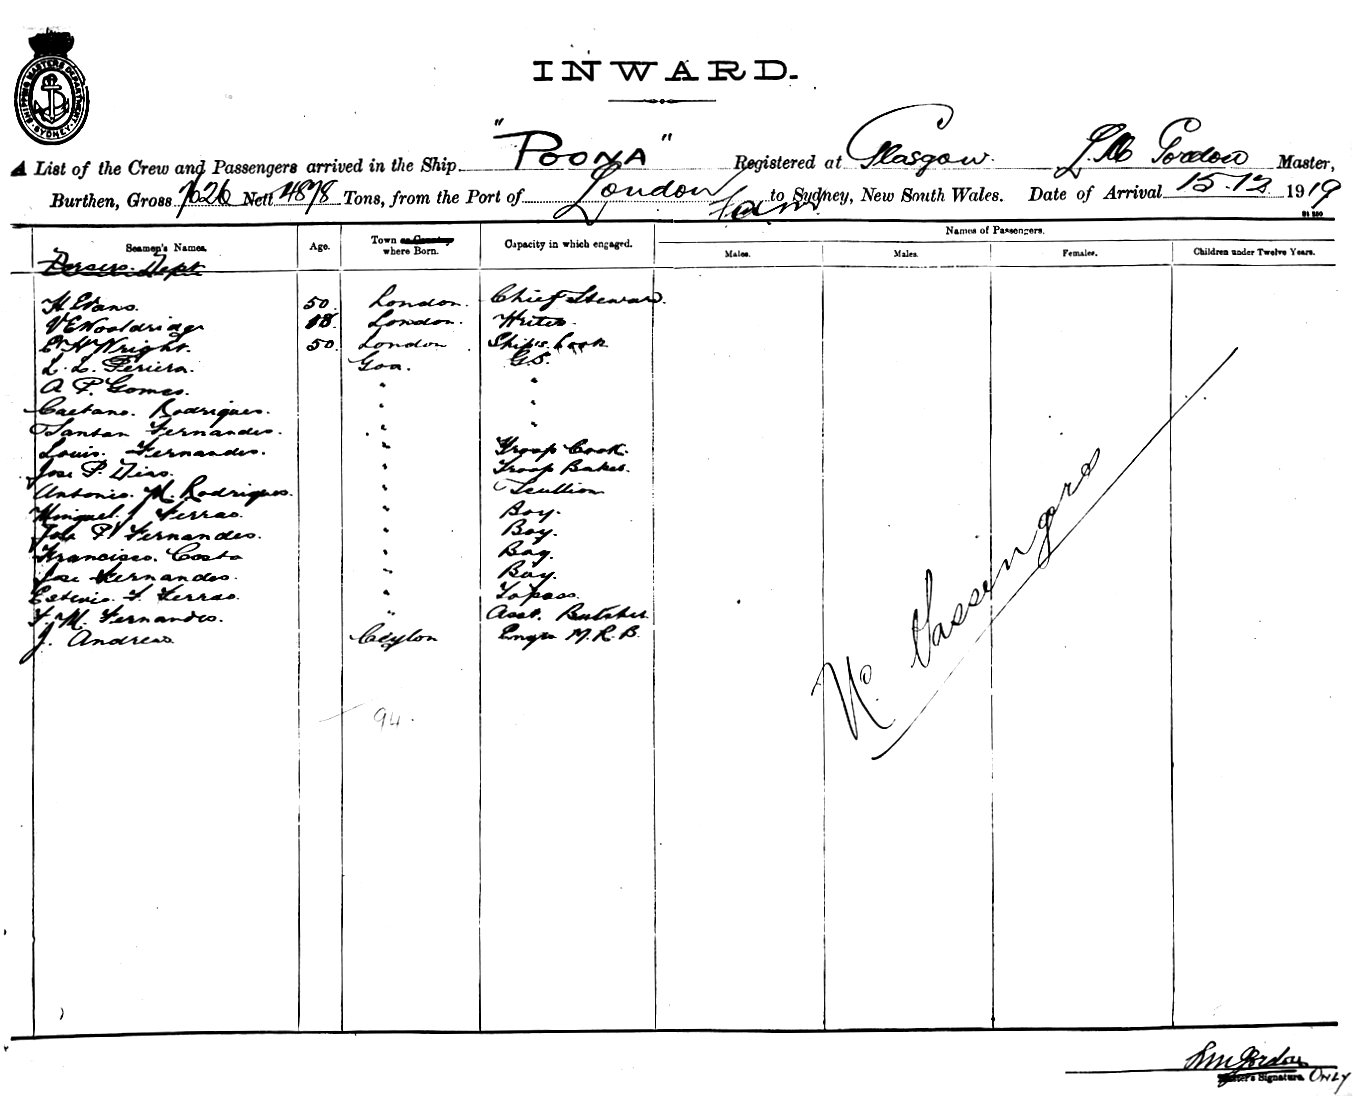 SHIPPING MASTERS DEPARTMENT SYDNEY
INWARD.
A List of the Crew and Passengers arrived in the Ship "POONA" Registered at Glasgow. L.M. Gordon Master,
Burthen, Gross 7626 Nett 4878 Tons, from the Port of London to Sydney, New South Wales. Date of Arrival 15-12 1919
Names of Passengers.
Seamen's Names. Age. Town or Country where Born. Capacity in which engaged. Males. Males. Females. Children under Twelve Years.
Pursers Dept
H Evans. 50. London. Chief Steward.
V E Wooldridge 18. London. Writer.
E H Wright. 50. London Ship's Cook
L. L. Periera. Goa. G.S.
A P. Gomes. " "
Caetano. Rodrigues. " "
Santan Fernandes. " "
Louis. Fernandes. " Troop Cook.
Jose P. Dias. " Troop Baker.
Antonio. M. Rodrigues. " Scullion
Minguel. J Ferrao. " Boy.
P. Fernandes. " Boy.
Francisco. Costa " Boy.
Jose Fernandes. " Boy.
F. Ferrao. " Topass.
F. M. Fernandes. " Asst. Butcher
J. Andreas Ceylon Engrs M.R.B.
94.
No. Passengers
LM Gordon
Master's Signature. ONLY